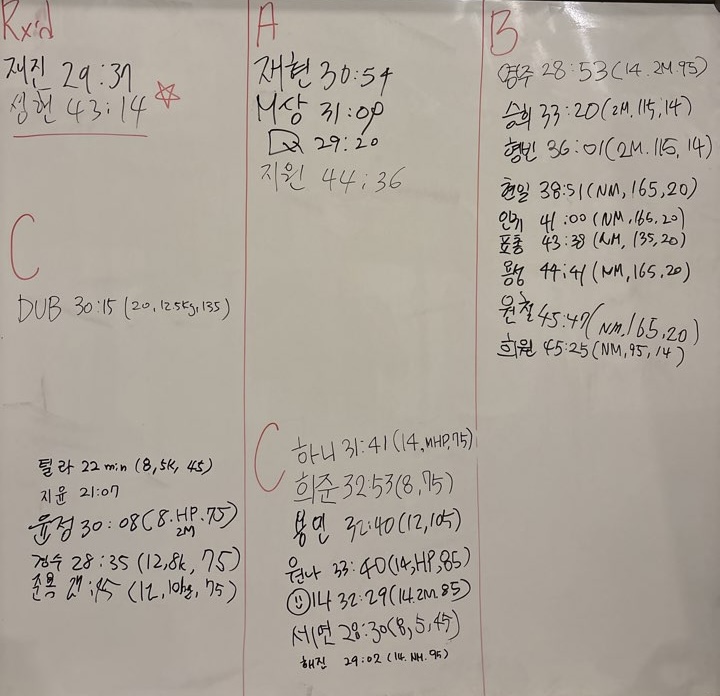 Rx'd
재진 29:37
성현 43:14
C
DUB 30:15 (20, 12.5kg, 135)
틸라 22min (8, 5k, 45)
지윤 21:07
윤정 30:08 (8. HP. 75)
2M
경수 28:35 (12, 8k, 75)
준용 :45 (12, 10kg, 75)
A
재현 30:54
M상 31:09
29:20
지원 44:36
C
하니 31:41 (14, MHP, 75)
희준 32:53 (8, 75)
봉연 32:40 (12, 105)
원나 33:40 (14, HP, 85)
14 32:29 (14. 2M. 85)
세연 28:30 (8, 5, 45)
해진 29:02 (14. NH. 95)
B
영주 28:53 (14. 2M. 95)
승희 33:20 (2M, 115, 14)
형빈 36:01 (2M. 115, 14)
현일 38:51 (NM, 165, 20)
인귀 41:00 (NM, 165, 20)
표통 43:38 (NM, 135, 20)
용성 44:41 (NM, 165, 20)
원철 45:47 (NM, 165, 20)
희원 45:25 (NM, 95, 14)